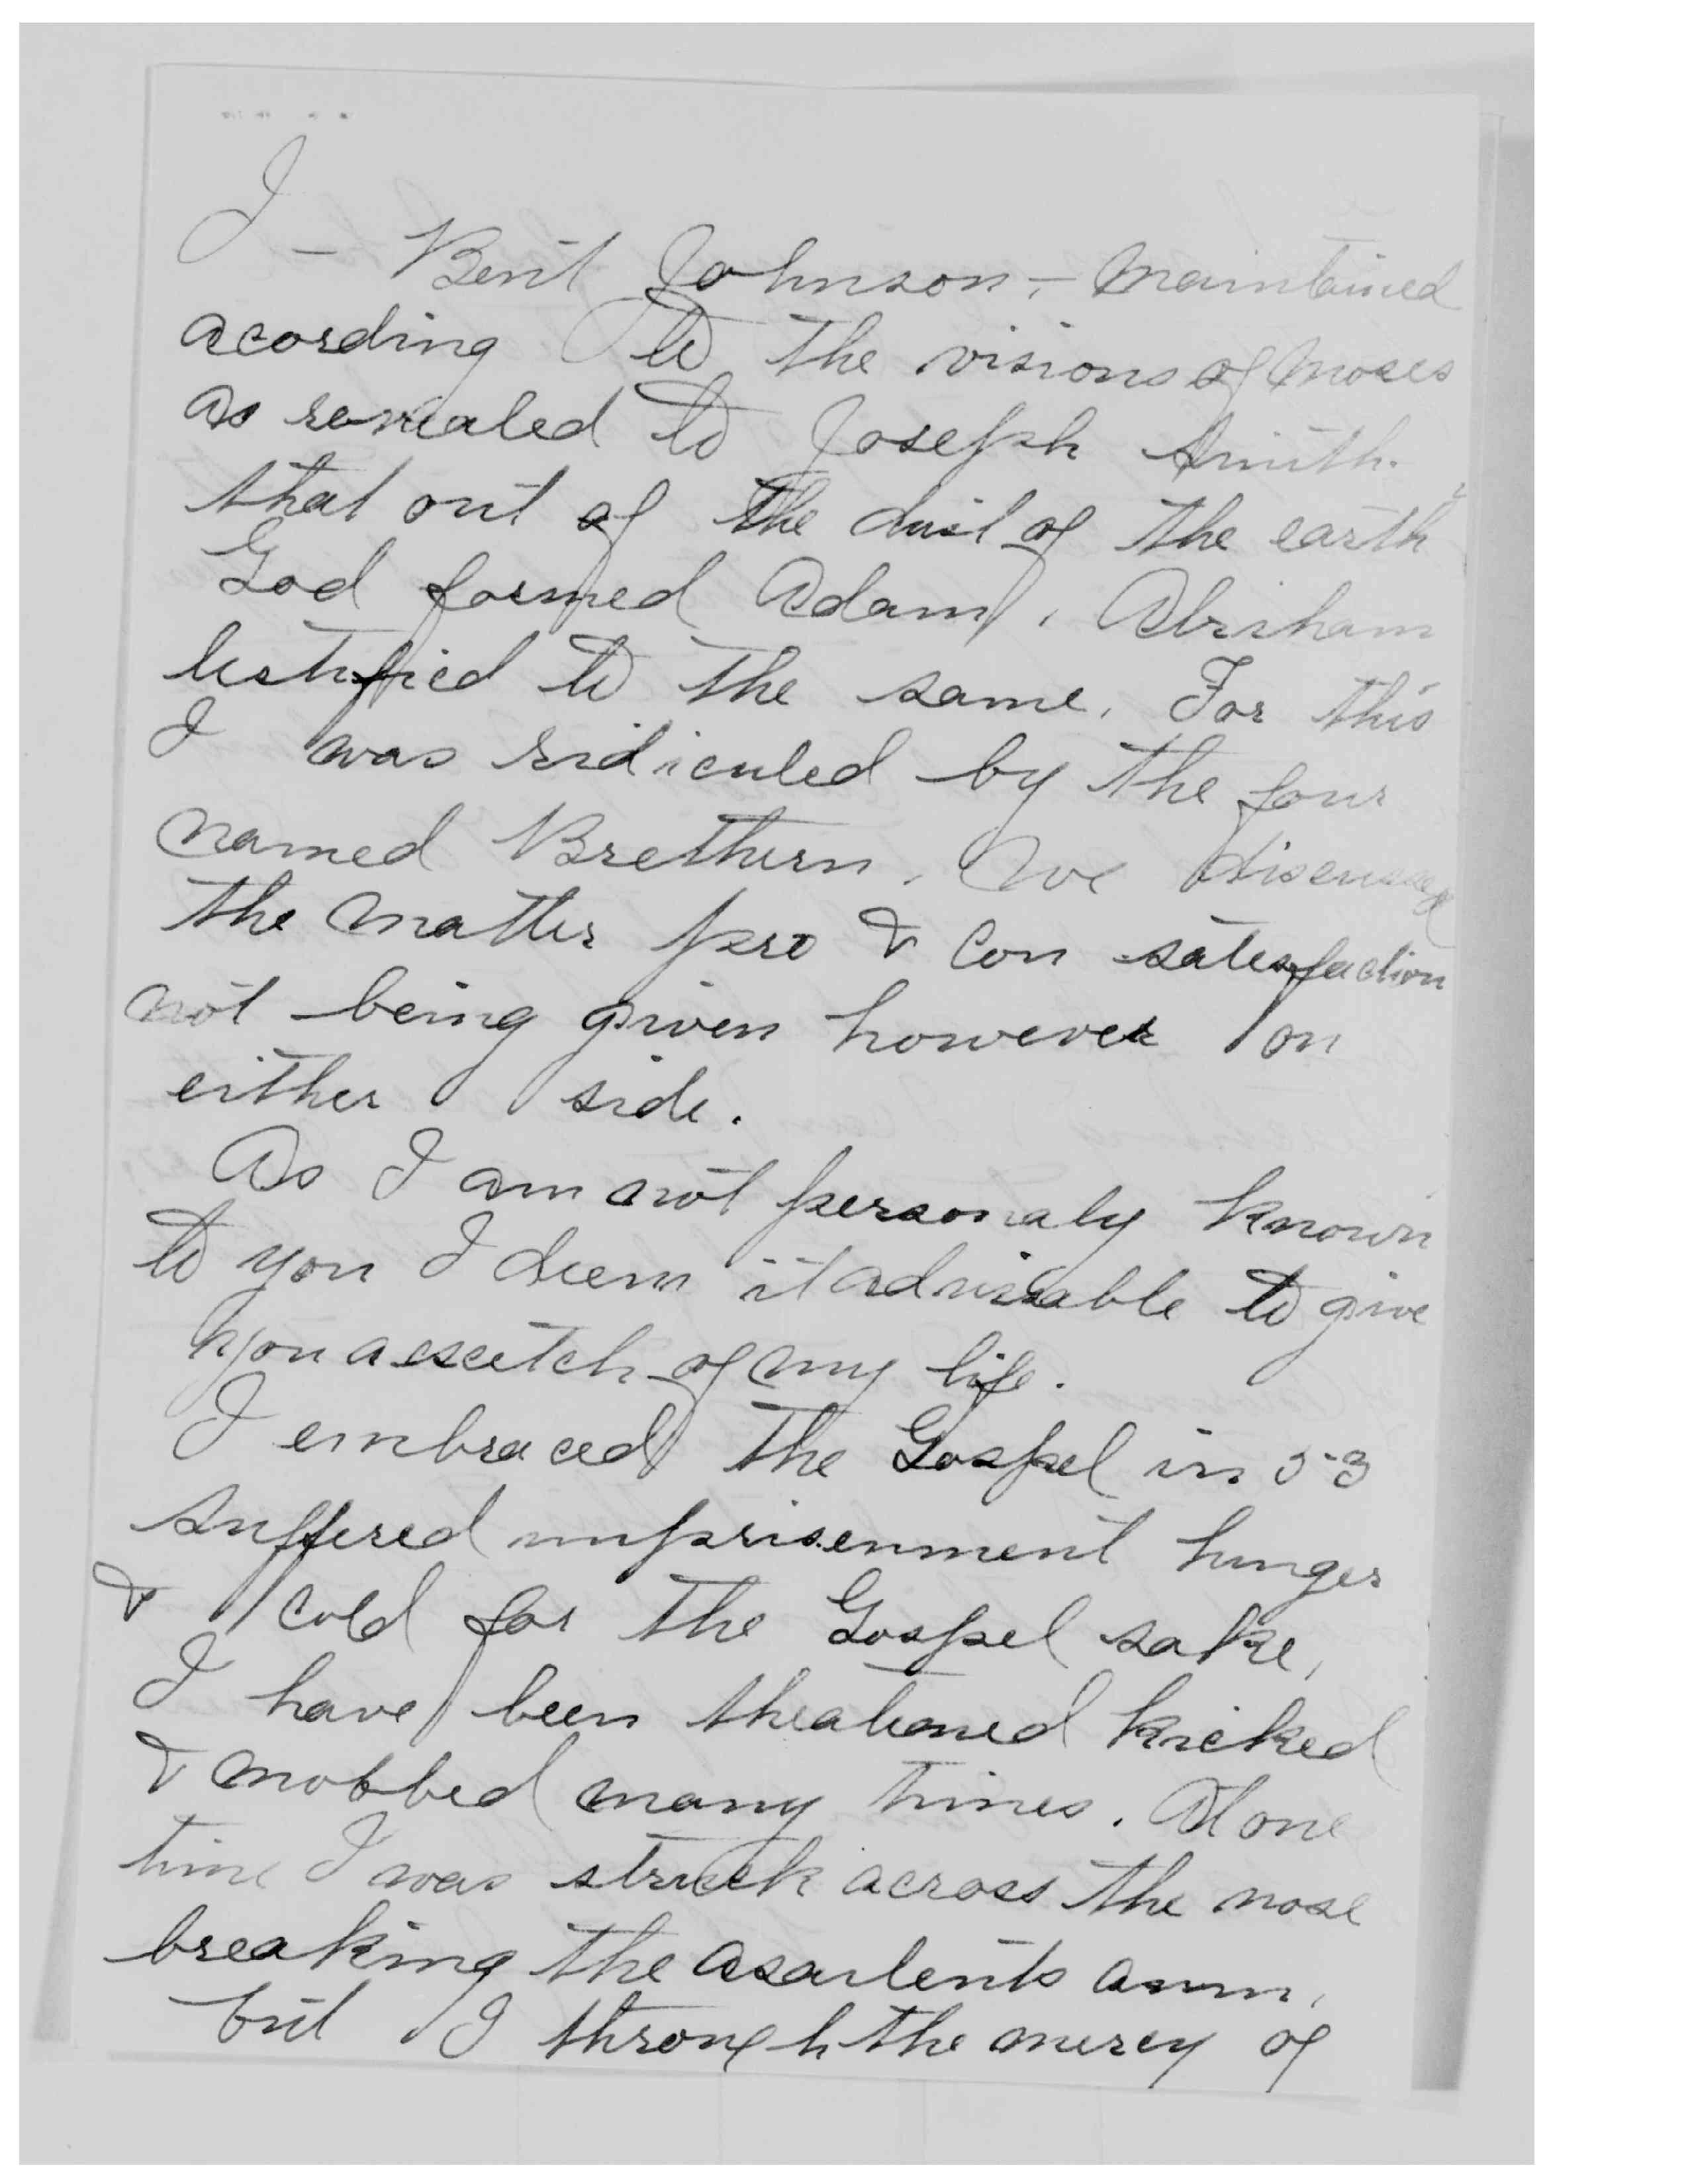 I - Bent Johnson, - maintained
acording to the visions of Moses
as revealed to Joseph Smith.
that out of the dust of the earth
God formed Adam, Abraham
testified to the same. For this
I was ridiculed by the four
named Brethern. We discussed
the matter pro & con satesfaction
not being given however on
either side.
As I am not personaly known
to you I deem it advisable to give
you a scetch of my life.
I embraced the Gospel in 53
suffered imprisenment hunger
& cold for the Gospel sake,
I have been theatened kicked
& mobbed many times. At one
time I was struck across the nose
breaking the asarlents arm,
but I through the mercy of